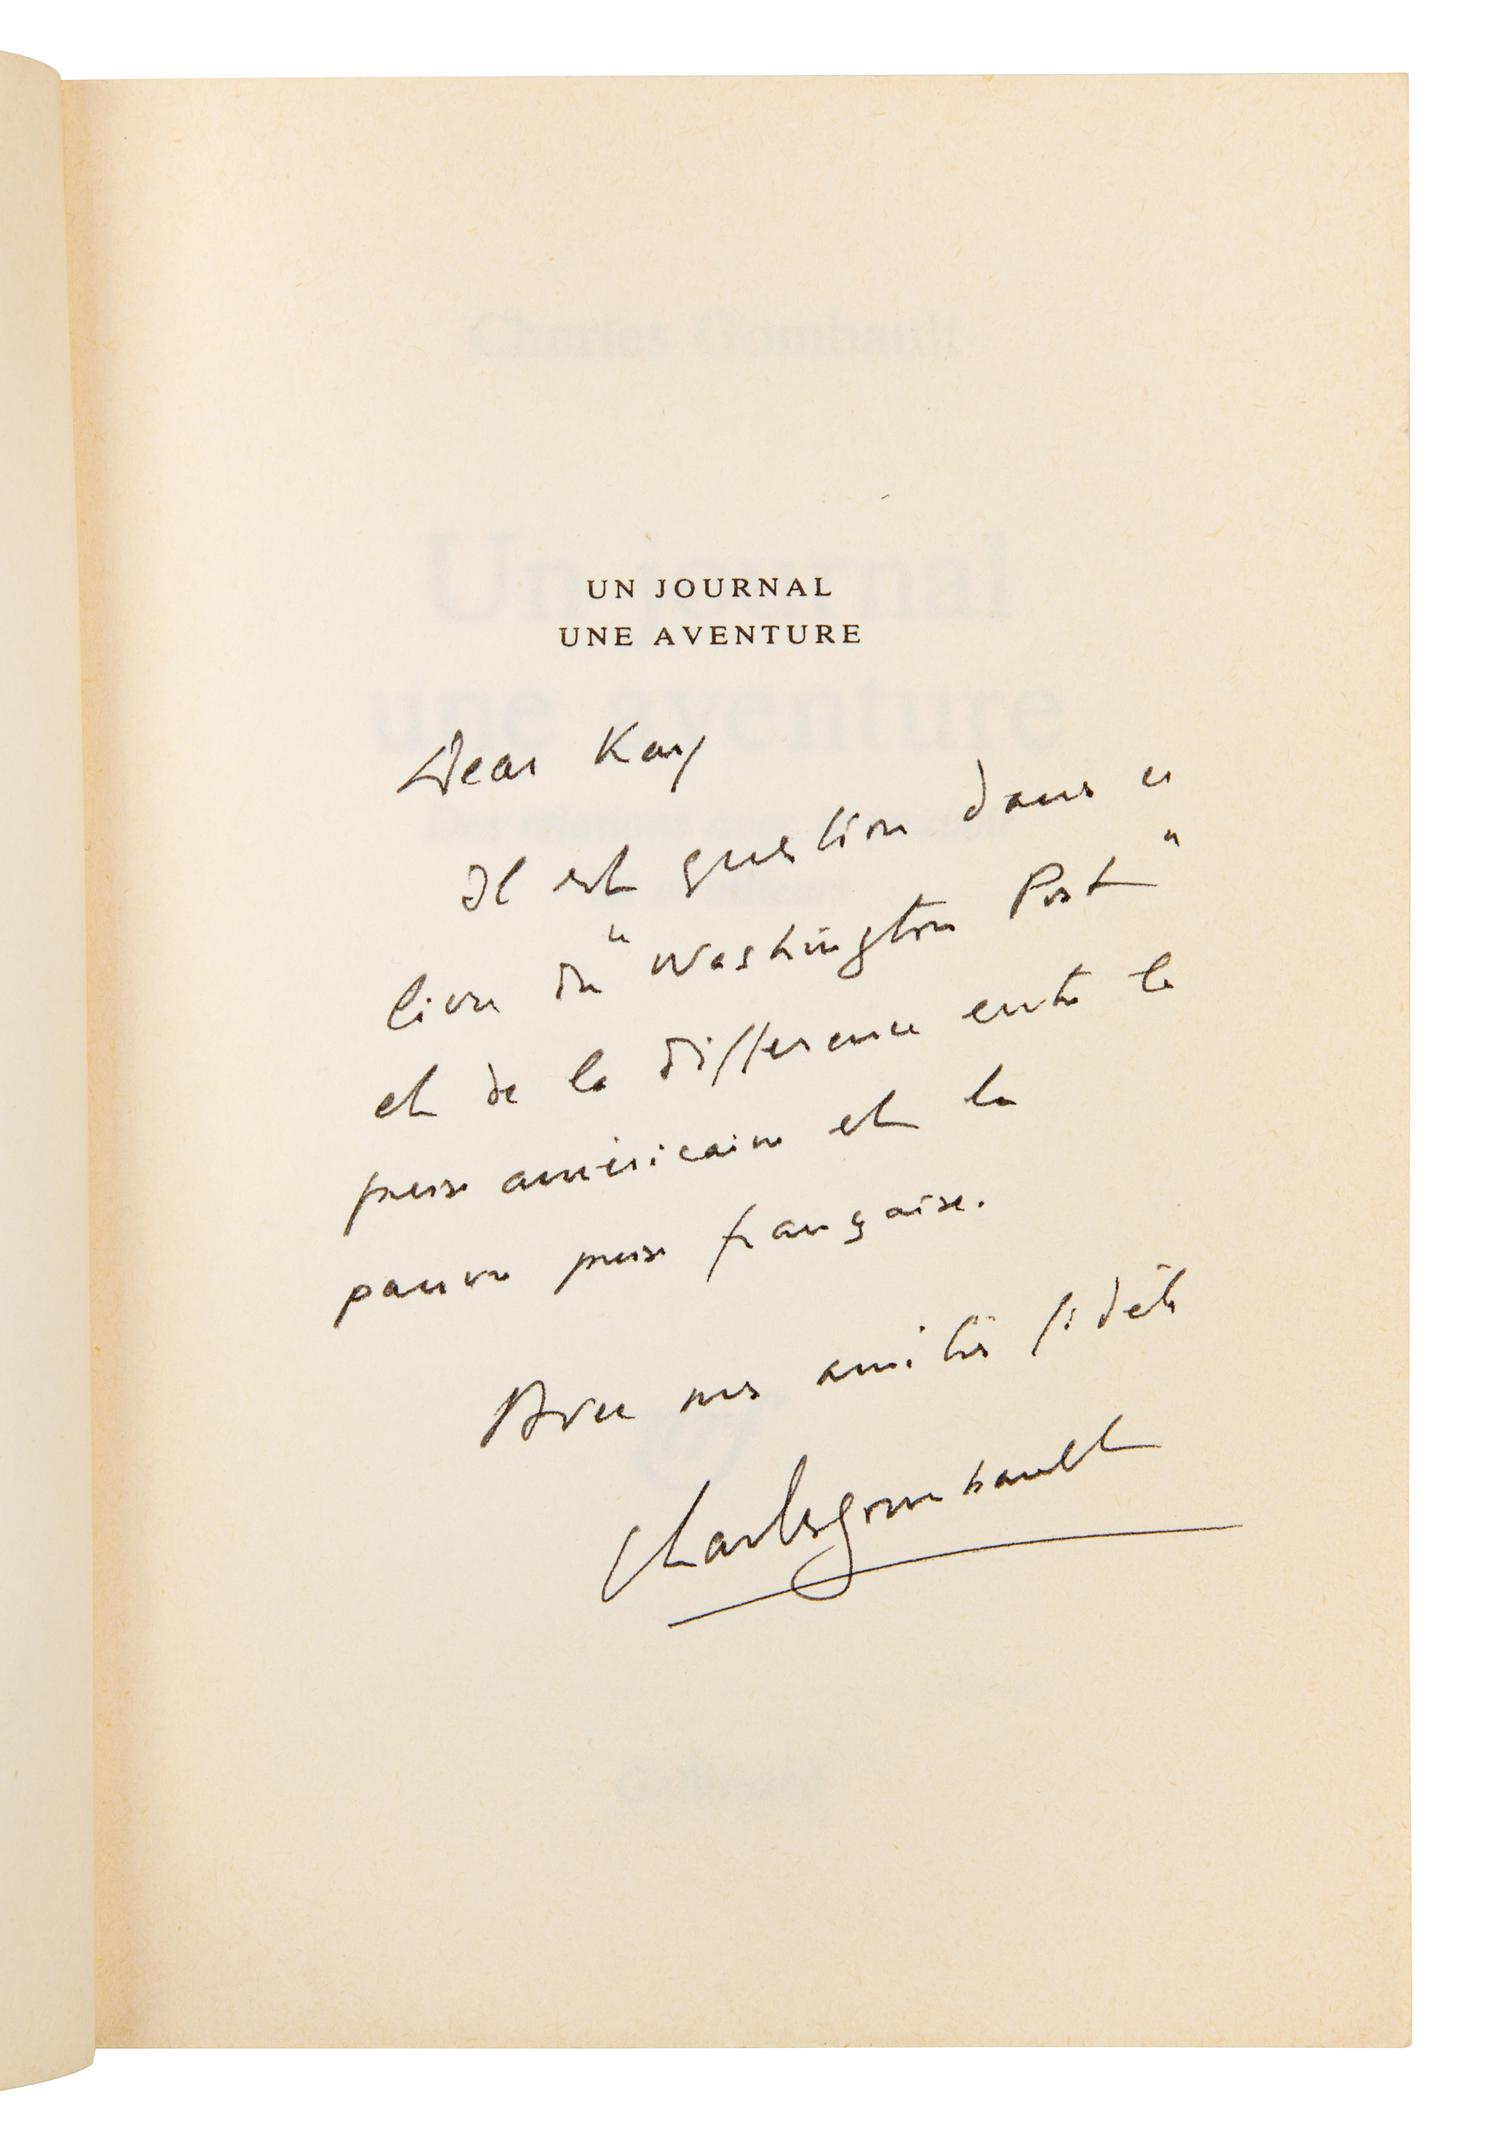 Charles Gombault
Un journal
UN JOURNAL
UNE AVENTURE
une aventure
Dear Kay
Il est question dans ce
livre du "Washington Post"
et de la différence entre la
presse américaine et la
pauvre presse française.
Avec mes amitiés fidèles
nrf
Charles Gombault
Gallimard